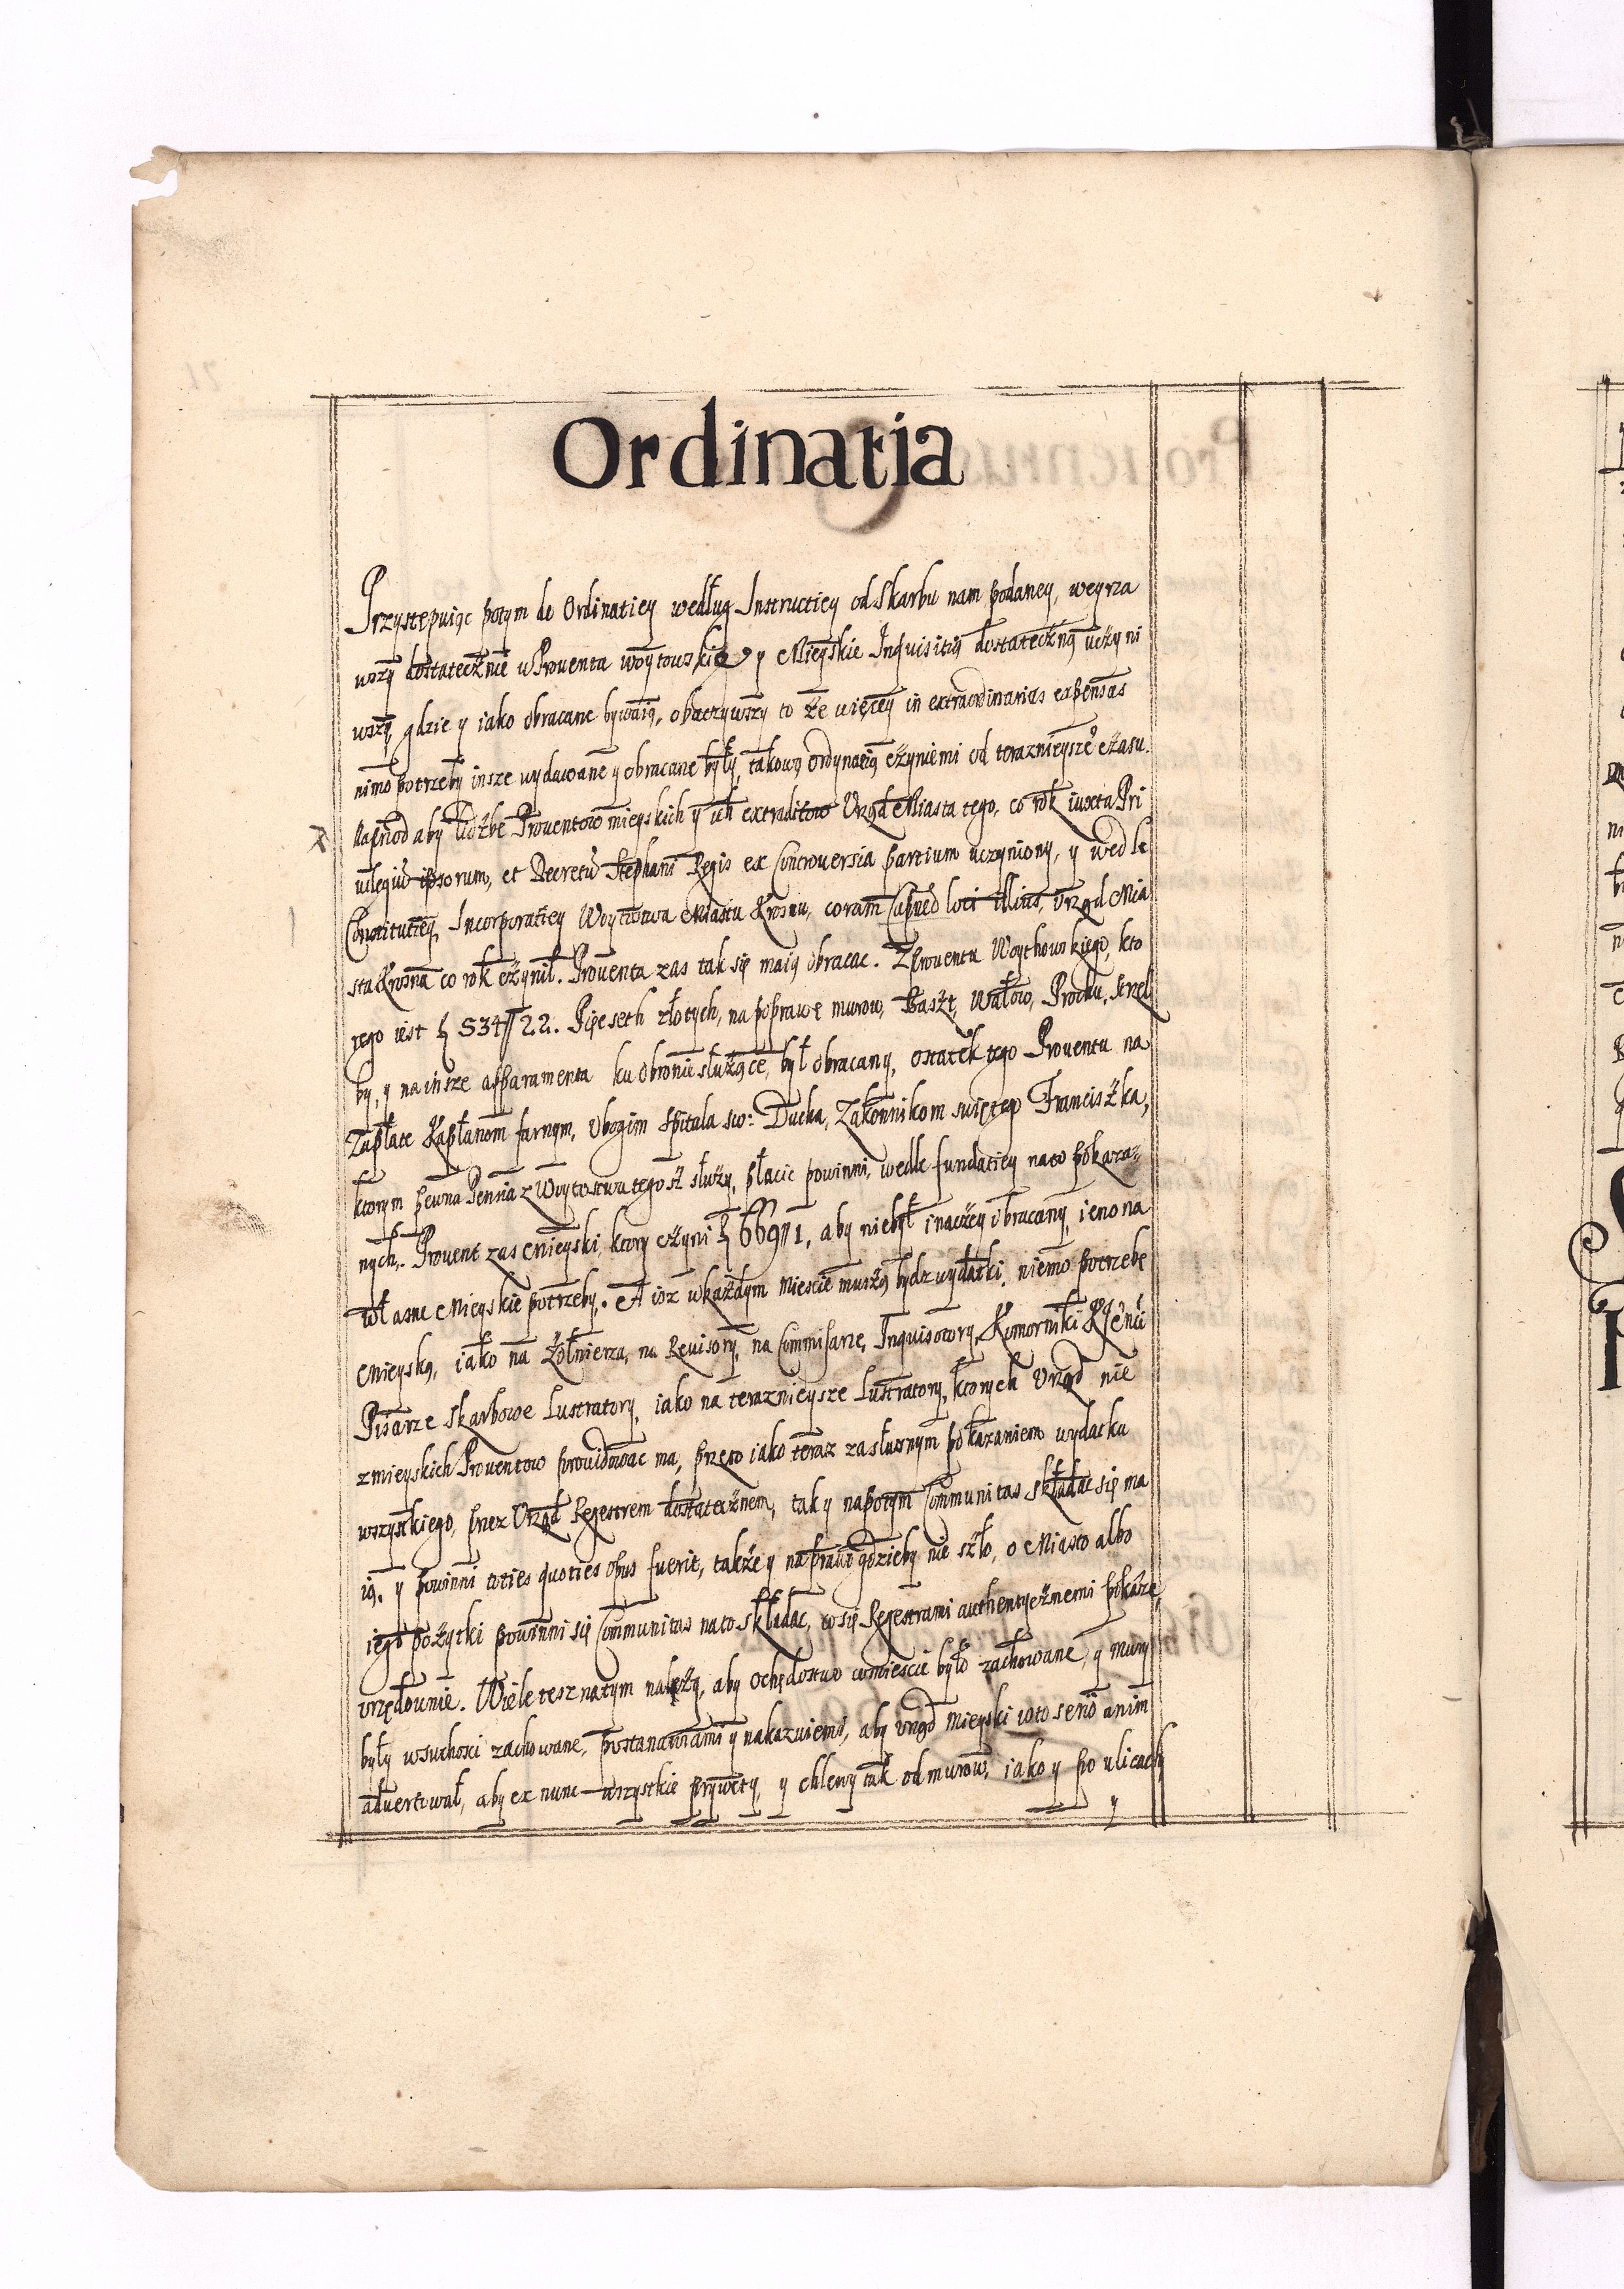 Ordinatia
Przystępuiąc potym do Ordinatiey według Instructiey od Skarbu nam podaney, weyrza
wszy dostatecznie w Prouenta woytowskie y Mieyskie Inquisitią dostateczną vczyni
wszy, gdzie y iako obracane bywaią, obaczywszy to że więcey in extraordinarias expensas
nimo potrzeby insze wydawane y obracane były, takową ordynatią czyniemi od teraznieysze° czasu.
Naprzod aby liczbe Prouentow mieyskich y ich extraditow Vrząd Miasta tego, co rok iuxta Pri
uilegiu ipsorum, et Decretu Stephani Regis ex Controuersia partium uczyniony, y wedle
Constitutiey Incorporatiey Woytostwa Miastu Krosnu, coram loci illius, Vrząd Mia
sta Krosna co rok czynił. Prouenta zas tak się maią obracac. Z Prouentu Woythowskiego, kto
rego iest 534 // 22. Pięcseth złotych, na poprawę murow, Baszt, Wałow, Prochu, strzel
by, y na insze apparamenta ku obronie służące, był obracany, ostatek tego Prouentu na
Zapłate Kapłanom farnym, Vbogim Spitala sw: Ducha, Zakonnikom swiętego Franciszka,
ktorym pewna Pensia z Woytostwa tego służy, płacic powinni, wedle fundatiey na to pokaza=
nych. Prouent zas Mieyski, ktory czyni 669 // 1, aby niebył inaczey obracany, ieno na
własne Mieyskie potrzeby. A iż w każdym Miescie muszą bydz wydatki, niemo potrzebę
Mieyską, iako na Żołnierza, na Reuisory, na Commisarze, Inquisotory, Komorniki
Pisarze Skarbowe Lustratory, iako na teraznieysze Lustratory, ktorych Vrząd nie
z mieyskich Prouentow prouidowac ma, przeto iako teraz za słusznym pokazaniem wydatku
wszystkiego, przez Vrząd Regestrem dostatecznem, tak y napotym Communitas składac się ma
ią. y powinni toties quoties opus fuerit, także y na prawo gdzieby nie szło, o Miasto albo
iego pożytki powinni się Communitas na to składac, co się Regestrami authentycznemi pokaze
vrzędownie. Wiele tesz natym należy, aby Ochędostwo w miescie było zachowane, y mury
były w suchosci zachowane, postanawiami y nakazuiemi, aby vrząd Mieyski w to serio anim
aduertował, aby ex nunc wszystkie prywety, y chlewy tak od murow, iako y po vlicach
y